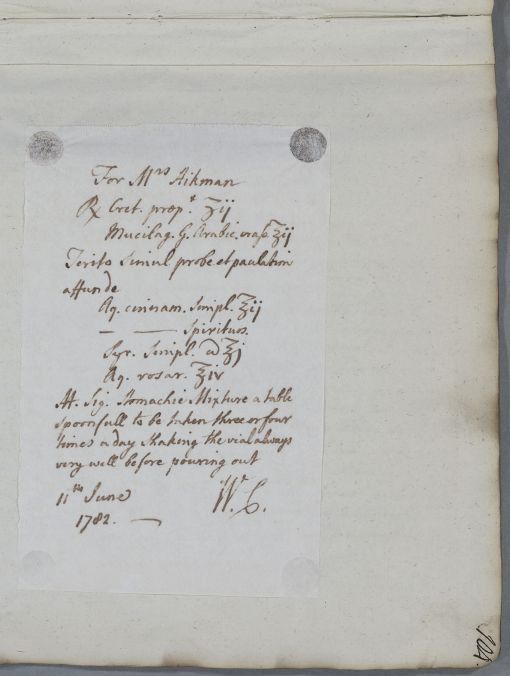 For Mrs Aikman
℞ Cret. ppt. ʒij
Mucilag. G. Arabic. crass. ʒij
Terito simul probe et paulatim
affunde
Aq. cinnam. simpl. ℥ij
— —— Spirituos.
Syr. Simpl. a ℥j
Aq. rosar. ℥iv
M. Sig. Stomachic Mixture a table
spoonfull to be taken three or four
times a day shaking the vial always
very well before pouring out
11th June
W. C.
1782. —
104